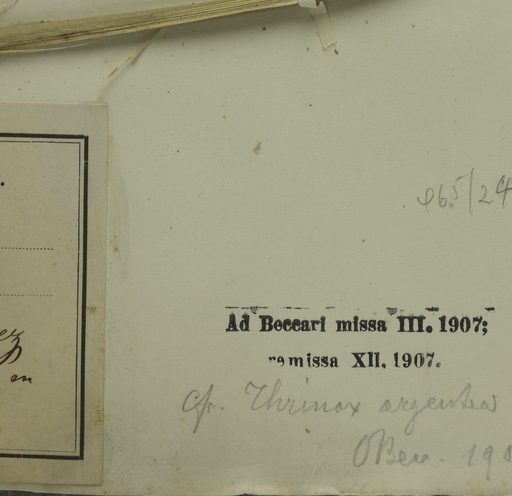 965/24
Ad Beccari missa III. 1907;
remissa XII. 1907.
cfr. Thrinax argentea
OBecc. 190
en